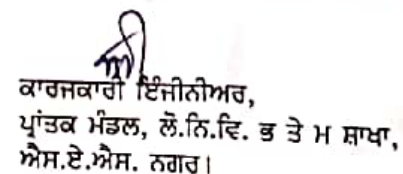 ਕਾਰਜਕਾਰੀ ਇੰਜੀਨੀਅਰ,
ਪ੍ਰਾਂਤਕ ਮੰਡਲ, ਲੋ.ਨਿ.ਵਿ. ਭ ਤੇ ਮ ਸ਼ਾਖਾ,
ਐਸ.ਏ.ਐਸ. ਨਗਰ।